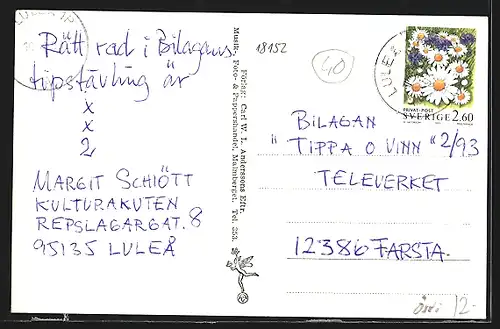 Rätt rad i Bilagans
tipstävling är
x
x
2
MARGIT SCHIÖTT
KULTURAKUTEN
REPSLAGARGAT. 8
95135 LULEÅ
18152
40
Förlag: Carl W. L. Anderssons Eftr.
Musik-, Foto- & Pappershandel, Malmberget. Tel. 253.
LULEÅ
LULEÅ
PRIVAT-POST
SVERIGE 2.60
BILAGAN
"TIPPA O VINN" 2/93
TELEVERKET
12386 FARSTA.
2-